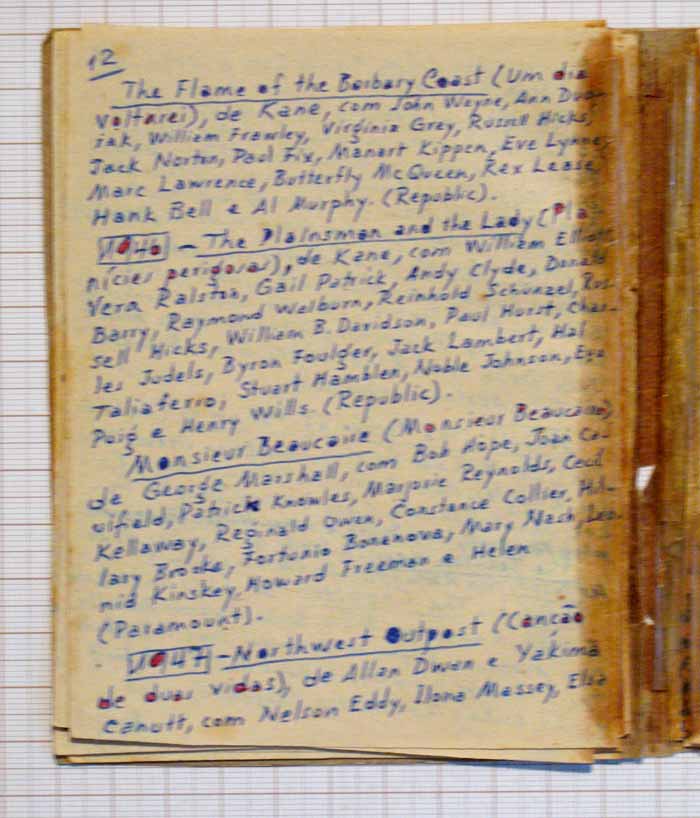 12
The Flame of the Barbary Coast (Um dia
voltarei), de Kane, com John Wayne, Ann Dvo-
rak, William Frawley, Virginia Grey, Russell Hicks,
Jack Norton, Paul Fix, Manart Kippen, Eve Lynne,
Marc Lawrence, Butterfly McQueen, Rex Lease,
Hank Bell e Al Murphy. (Republic).
1946 - The Plainsman and the Lady (Pla-
nícies perigosas), de Kane, com William Elliott,
Vera Ralston, Gail Patrick, Andy Clyde, Donald
Barry, Raymond Walburn, Reinhold Schunzel, Rus-
sell Hicks, William B. Davidson, Paul Hurst, Char-
les Judels, Byron Foulger, Jack Lambert, Hal
Taliaferro, Stuart Hamblen, Noble Johnson, Eva
Puig e Henry Wills. (Republic).
Monsieur Beaucaire (Monsieur Beaucaire),
de George Marshall, com Bob Hope, Joan Ca-
ulfield, Patrick Knowles, Marjorie Reynolds, Cecil
Kellaway, Reginald Owen, Constance Collier, Hil-
lary Brooke, Fortunio Bonanova, Mary Nash, Leo-
nid Kinskey, Howard Freeman e Helen
(Paramount).
1947 - Northwest Outpost (Canção
de duas vidas), de Allan Dwan e Yakima
Canutt, com Nelson Eddy, Ilona Massey, Elsa